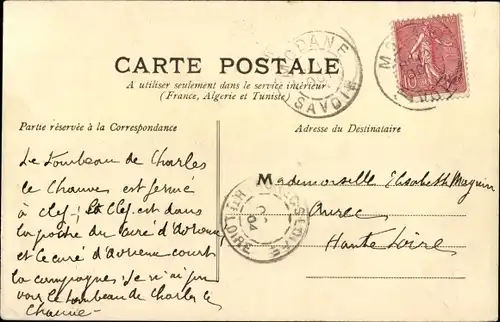 CARTE POSTALE
A utiliser seulement dans le service intérieur
(France, Algerie et Tunisie)
MODANE
SAVOIE
Partie réservée à la Correspondance
Adresse du Destinataire
Le tombeau de Charles
le Chauve est fermé
à clef; la clef est dans
la poche du curé d'
et le curé d' court
la campagne; je n'ai pu
voir le tombeau de Charles le
Chauve -
Mademoiselle Elisabeth
Aurec
Haute Loire
HTE LOIRE
04